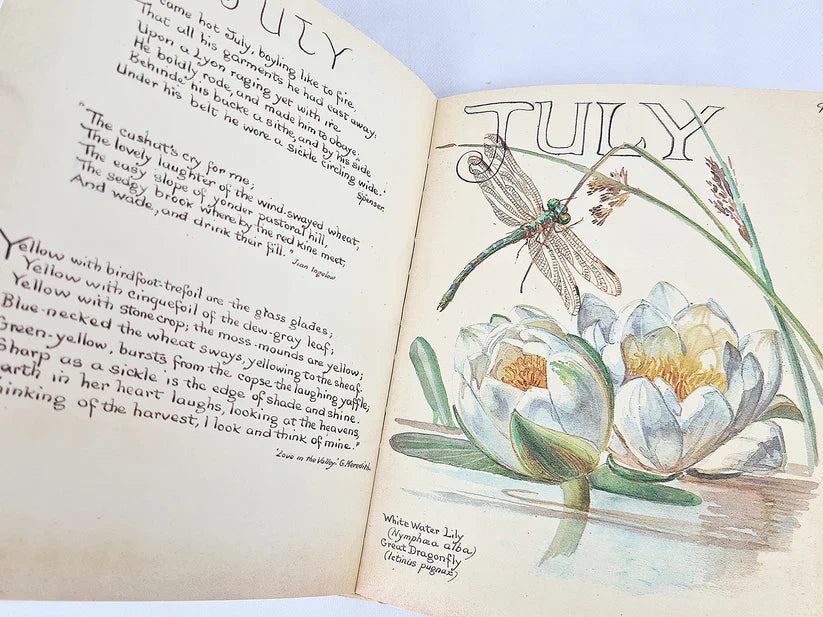 JULY
came hot July, boyling like to fire,
That all his garments he had cast away,
Upon a Lyon raging yet with ire
He boldly rode, and made him to obaye."
Behinde his backe a sithe, and by his side
Under his belt he wore a sickle circling wide."
Spenser.
"The cushat's cry for me;
The lovely laughter of the wind-swayed wheat,
The easy slope of yonder pastoral hill,
The sedgy brook whereby the red kine meet,
And wade, and drink their fill."
Jean Ingelow
Yellow with birdfoot-trefoil are the glass glades;
Yellow with cinquefoil of the dew-gray leaf;
Yellow with stone crop; the moss-mounds are yellow;
Blue-necked the wheat sways, yellowing to the sheaf;
Green-yellow, bursts from the copse the laughing yaffle;
Sharp as a sickle is the edge of shade and shine.
earth in her heart laughs, looking at the heavens,
hinking of the harvest, I look and think of mine."
'Love in the Valley.' G. Meredith.
JULY
White Water Lily
(Nymphœa alba)
Great Dragonfly
(Ictinus pugnax)